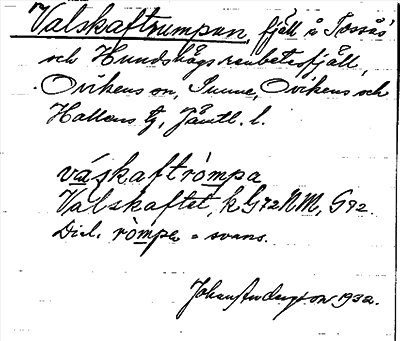 Valskaftrumpan, fjäll å Tossås
och Hundshögs renbetesfjäll,
Ovikens sn, Sunne, Ovikens och
Hallens tg, Jämtl. l.
váskaftròmpa
Valskaftet, k G72NM, G72.
Dial. ròmpa = svans.
Johan Anderson 1932.